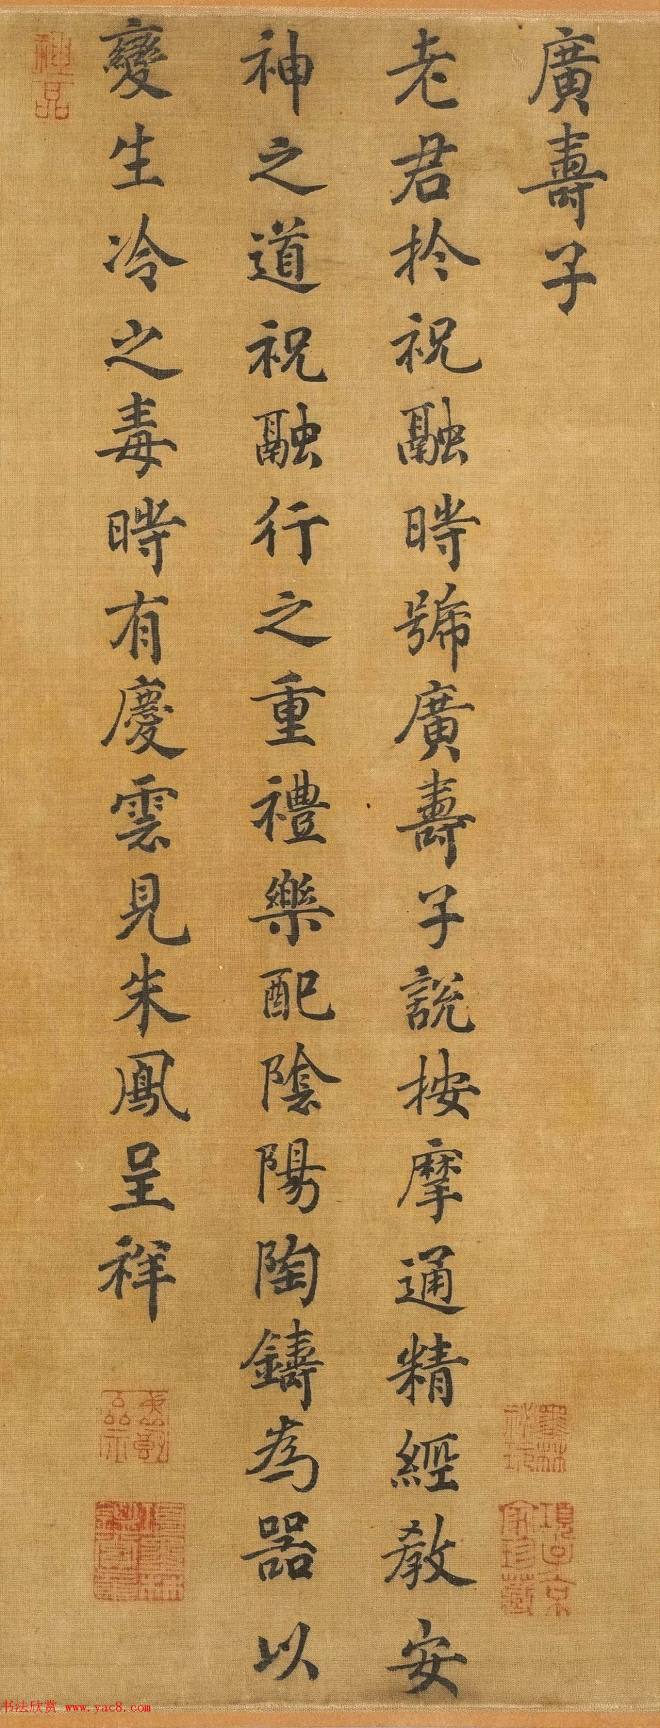 廣壽子
老君於祝融時號廣壽子說按摩通精經教安
神之道祝融行之重禮樂配陰陽陶鑄為器以
變生冷之毒時有慶雲見朱鳳呈祥
項子京家珍藏
书法欣赏 www.yac8.com